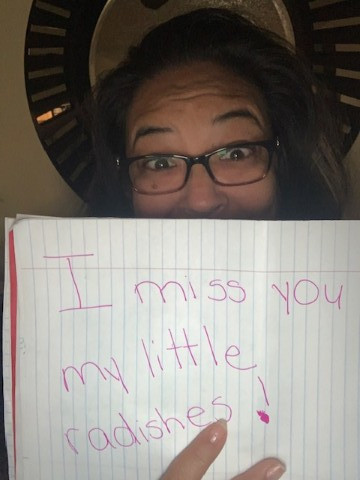 I miss you
my little
radishes!